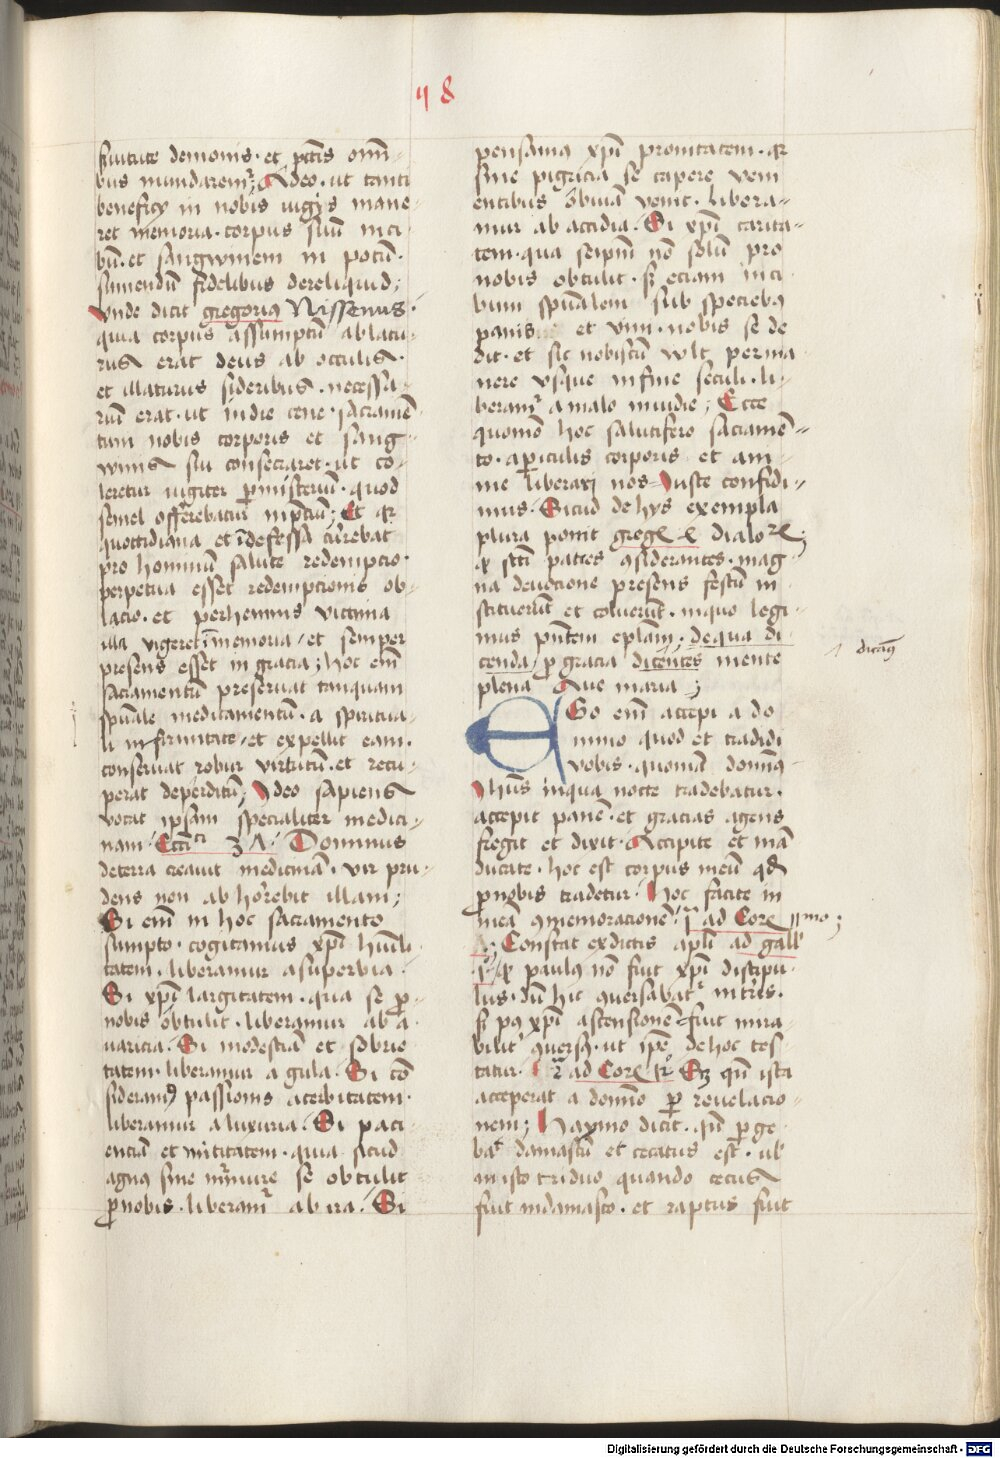 48
s̄uitute demonis · et pctīs om̄i
bus mundaremʳ; Adeo · ut tanti
beneficij in nobis iugijs mane
ret memoria · corpus suū in ci
bū · et sangwinem in potū ·
sumendū fidelibus dereliquid;
Vnde dicit gregoriꝰ Nissenus ·
quia corpus assumptū ablatu
rus erat deus ab occulis ·
et illaturus sideribus · necessa
riū erat · ut in die cene · sacramē
tum nobis corporis et sang
winis sui consecraret · ut co
leretur iugiter ꝑ misteriū · quod
semel offerebatur in p̄ciū; Et qr
quottidiana et īdefessa currebat
pro hominū salute redempcio ·
perpetua esset redempcionis ob
lacio · et perhennis victima
illa vigeret ī memoria / et semper
presens esset in gracia; hoc em̄
sacramentū preseruat tanquam
spūale medicamentū · a spiritua
li infirmitate / et expellit eam ·
conseruat robur virtutū · et recu
perat deperditū; Ideo sapiens
vocat ipsam specialiter medici
nam · Eccīci 3 A · Dominus
de terra creauit medicinā · vir pru
dens non abhorrebit illam;
Si em̄ in hoc sacramento
sumpto · cogitamus xp̄i humili
tatem · liberamur a superbia ·
Si xp̄i largitatem · qua se ꝓ
nobis obtulit · liberamur ab a
uaricia · Si modestiā et sobrie
tatem · liberamur a gula · Si cō
sideramꝰ passionis acerbitatem ·
liberamur a luxuria · Si paci
enciā et mititatem · quia sicud
agnus sine murmure se obtulit
ꝓ nobis · liberamʳ ab ira · Si
pensamꝰ xp̄i pronitatem · qr
sine pigricia se capere veni
entibus obuiā venit · libera
mur ab accidia · Si xp̄i carita
tem · qua seipm̄ nō solū pro
nobis obtulit · s̄ eciam in ci
bum spūalem sub speciebꝰ
panis et vini · nobis se de
dit · et sic nobiscū wlt perma
nere vsque in fine seculi · li
beramʳ a malo inuidie; Ecce
quomō hoc salutifero sacramē
to · a periculis corporis et ani
me liberari nos iuste confidi
mus · Sicud de hijs exempla
plura ponit greḡ in dialoꝝ;
qd̄ sc̄ti patres ꝯsiderantes · mag
na deuocione presens festū in
stituerūt et coluerūt · in quo legi
mus pn̄tem ep̄lam; de qua di
cenda / ꝓ gracia dicentes mente
plena Aue maria;
dicam̄ꝰ
Ego em̄ accepi a do
mino quod et tradidi
vobis · quoniā domin̄ꝰ
Ihūs in qua nocte tradebatur ·
accepit panē · et gracias agens
fregit et dixit · Accipite et mā
ducate · hoc est corpus meū qd̄
ꝓ nobis tradetur · hoc facite in
meā ꝯmemoracionē · I ad Cor̄ ijmo;
A; Constat ex dictis apl̄i ad gall̄
I qd̄ paulꝰ nō fuit xp̄i discipu
lus · dū hic ꝯuersabatʳ in tr̄is ·
s̄ pꝰ xp̄i ascensionē fuit mira
bilitʳ ꝯuersꝰ · ut ip̄e de hoc tes
tatur · I ad Cor̄ Ex qn̄ ista
acceperat a domīo ꝑ reuelacio
nem; Haymo dicit · qn̄ perge
batʳ damascū et cecatus est · ul̄
in isto triduo quando cecus
fuit in damasco · et raptus fuit
Digitalisierung gefördert durch die Deutsche Forschungsgemeinschaft · DFG